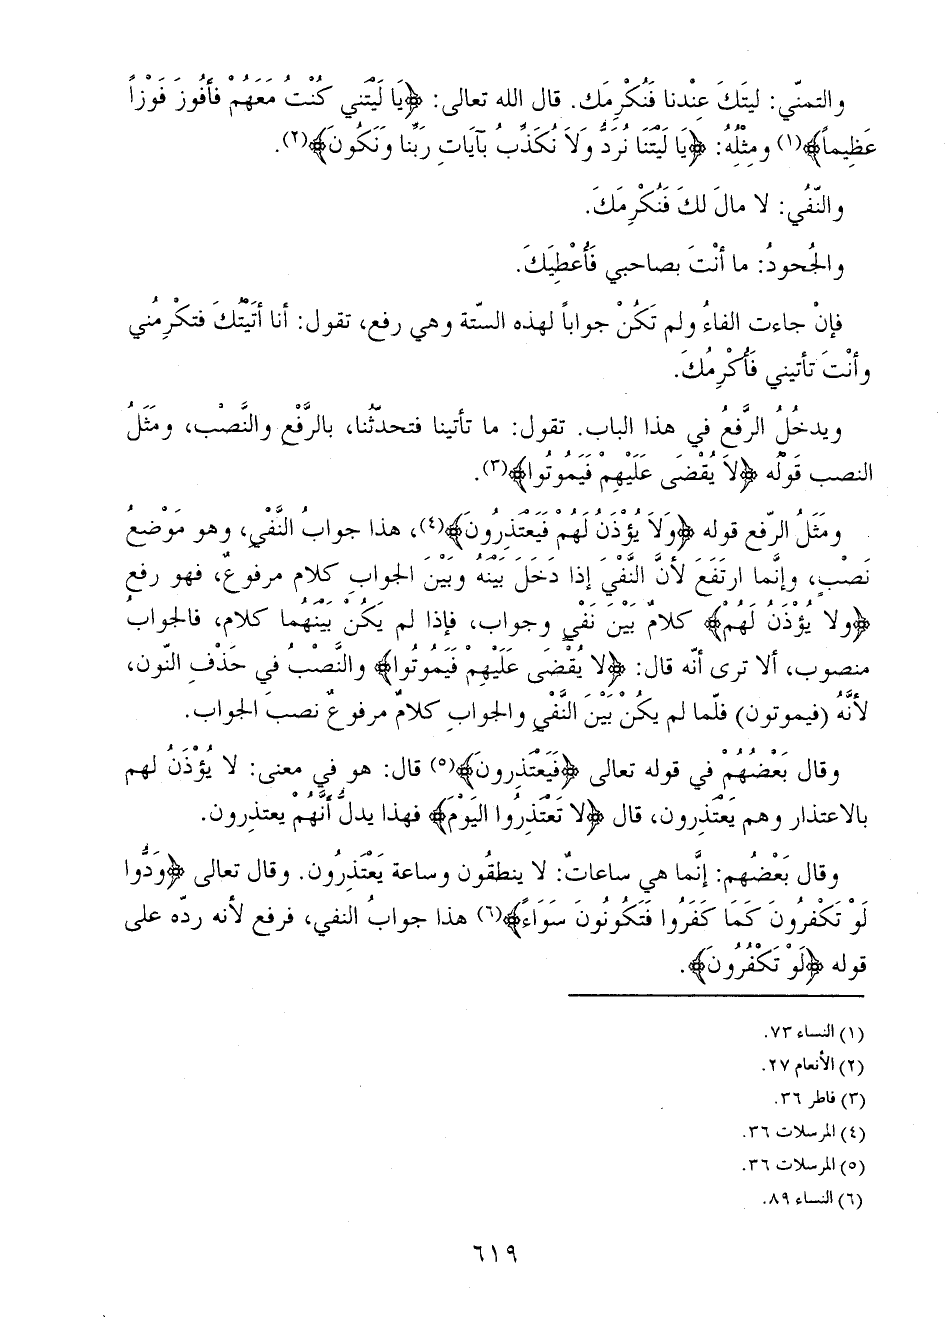 والتمنّي: ليتَكَ عِنْدنا فَنُكْرِمَك. قال الله تعالى: ﴿يَا لَيْتَني كُنْتُ مَعَهُمْ فأفُوزَ فَوْزاً
عَظِيماً﴾(١) ومِثْلُهُ: ﴿يَا لَيْتَنَا نُرَدُّ وَلاَ نُكَذِّبُ بآيَاتِ رَبِّنَا وَنَكُونَ﴾(٢).
والنّفْي: لا مالَ لكَ فَنُكْرِمَكَ.
والجُحودُ: ما أنْتَ بصاحبي فَأُعْطِيَكَ.
فإنْ جاءت الفاءُ ولم تَكُنْ جواباً لهذه الستّة وهي رفع، تقول: أنا أتَيْتُكَ فتكْرِمُني
وأنْتَ تأتيني فَأُكْرِمُكَ.
ويدخُلُ الرَّفعُ في هذا الباب. تقول: ما تأتينا فتحدّثُنا، بالرفْع والنَّصْب، ومَثَلُ
النصب قَوْلُه ﴿لاَ يُقْضَى عَلَيْهِمْ فَيَمُوتُوا﴾(٣).
ومَثَلُ الرّفع قوله ﴿وَلاَ يُؤْذَنُ لَهُمْ فَيَعْتَذِرُونَ﴾(٤)، هذا جوابُ النَّفْي، وهو مَوْضعُ
نَصْبٍ، وإنَّما ارتَفَعَ لأنَّ النَّفْيَ إذا دَخَلَ بَيْنَهُ وبَيْنَ الجوابِ كلام مرفوعٌ، فهو رفع
﴿ولا يُؤْذَنُ لَهُمْ﴾ كلامٌ بَيْنَ نَفْيٍ وجواب، فإذا لم يَكُنْ بَيْنَهُما كلام، فالجوابُ
منصوب، ألا ترى أنّه قال: ﴿لا يُقْضَى عَلَيْهِمْ فَيَمُوتُوا﴾ والنَّصْبُ في حَذْفِ النّون،
لأنَّهُ (فيموتون) فلّما لم يكُنْ بَيْنَ النَّفْي والجوابِ كلامٌ مرفوعٌ نصبَ الجواب.
وقال بَعْضُهُمْ في قوله تعالى ﴿فَيَعْتَذِرونَ﴾(٥) قال: هو في معنى: لا يُؤْذَنُ لهم
بالاعتذار وهم يَعْتَذِرون، قال ﴿لا تَعْتَذِرُوا اليَوْمَ﴾ فهذا يدلُّ أنَّهُمْ يعتذِرون.
وقال بَعْضُهم: إنَّما هي ساعاتٌ: لا ينطقُون وساعة يَعْتَذِرُون. وقال تعالى ﴿وَدُّوا
لَوْ تَكْفُرونَ كَمَا كَفَرُوا فَتَكُونُونَ سَوَاءً﴾(٦) هذا جوابُ النفي، فرفع لأنه ردّه على
قوله ﴿لَوْ تَكْفُرُونَ﴾.
(١) النساء ٧٣.
(٢) الأنعام ٢٧.
(٣) فاطر ٣٦.
(٤) المرسلات ٣٦.
(٥) المرسلات ٣٦.
(٦) النساء ٨٩.
٦١٩